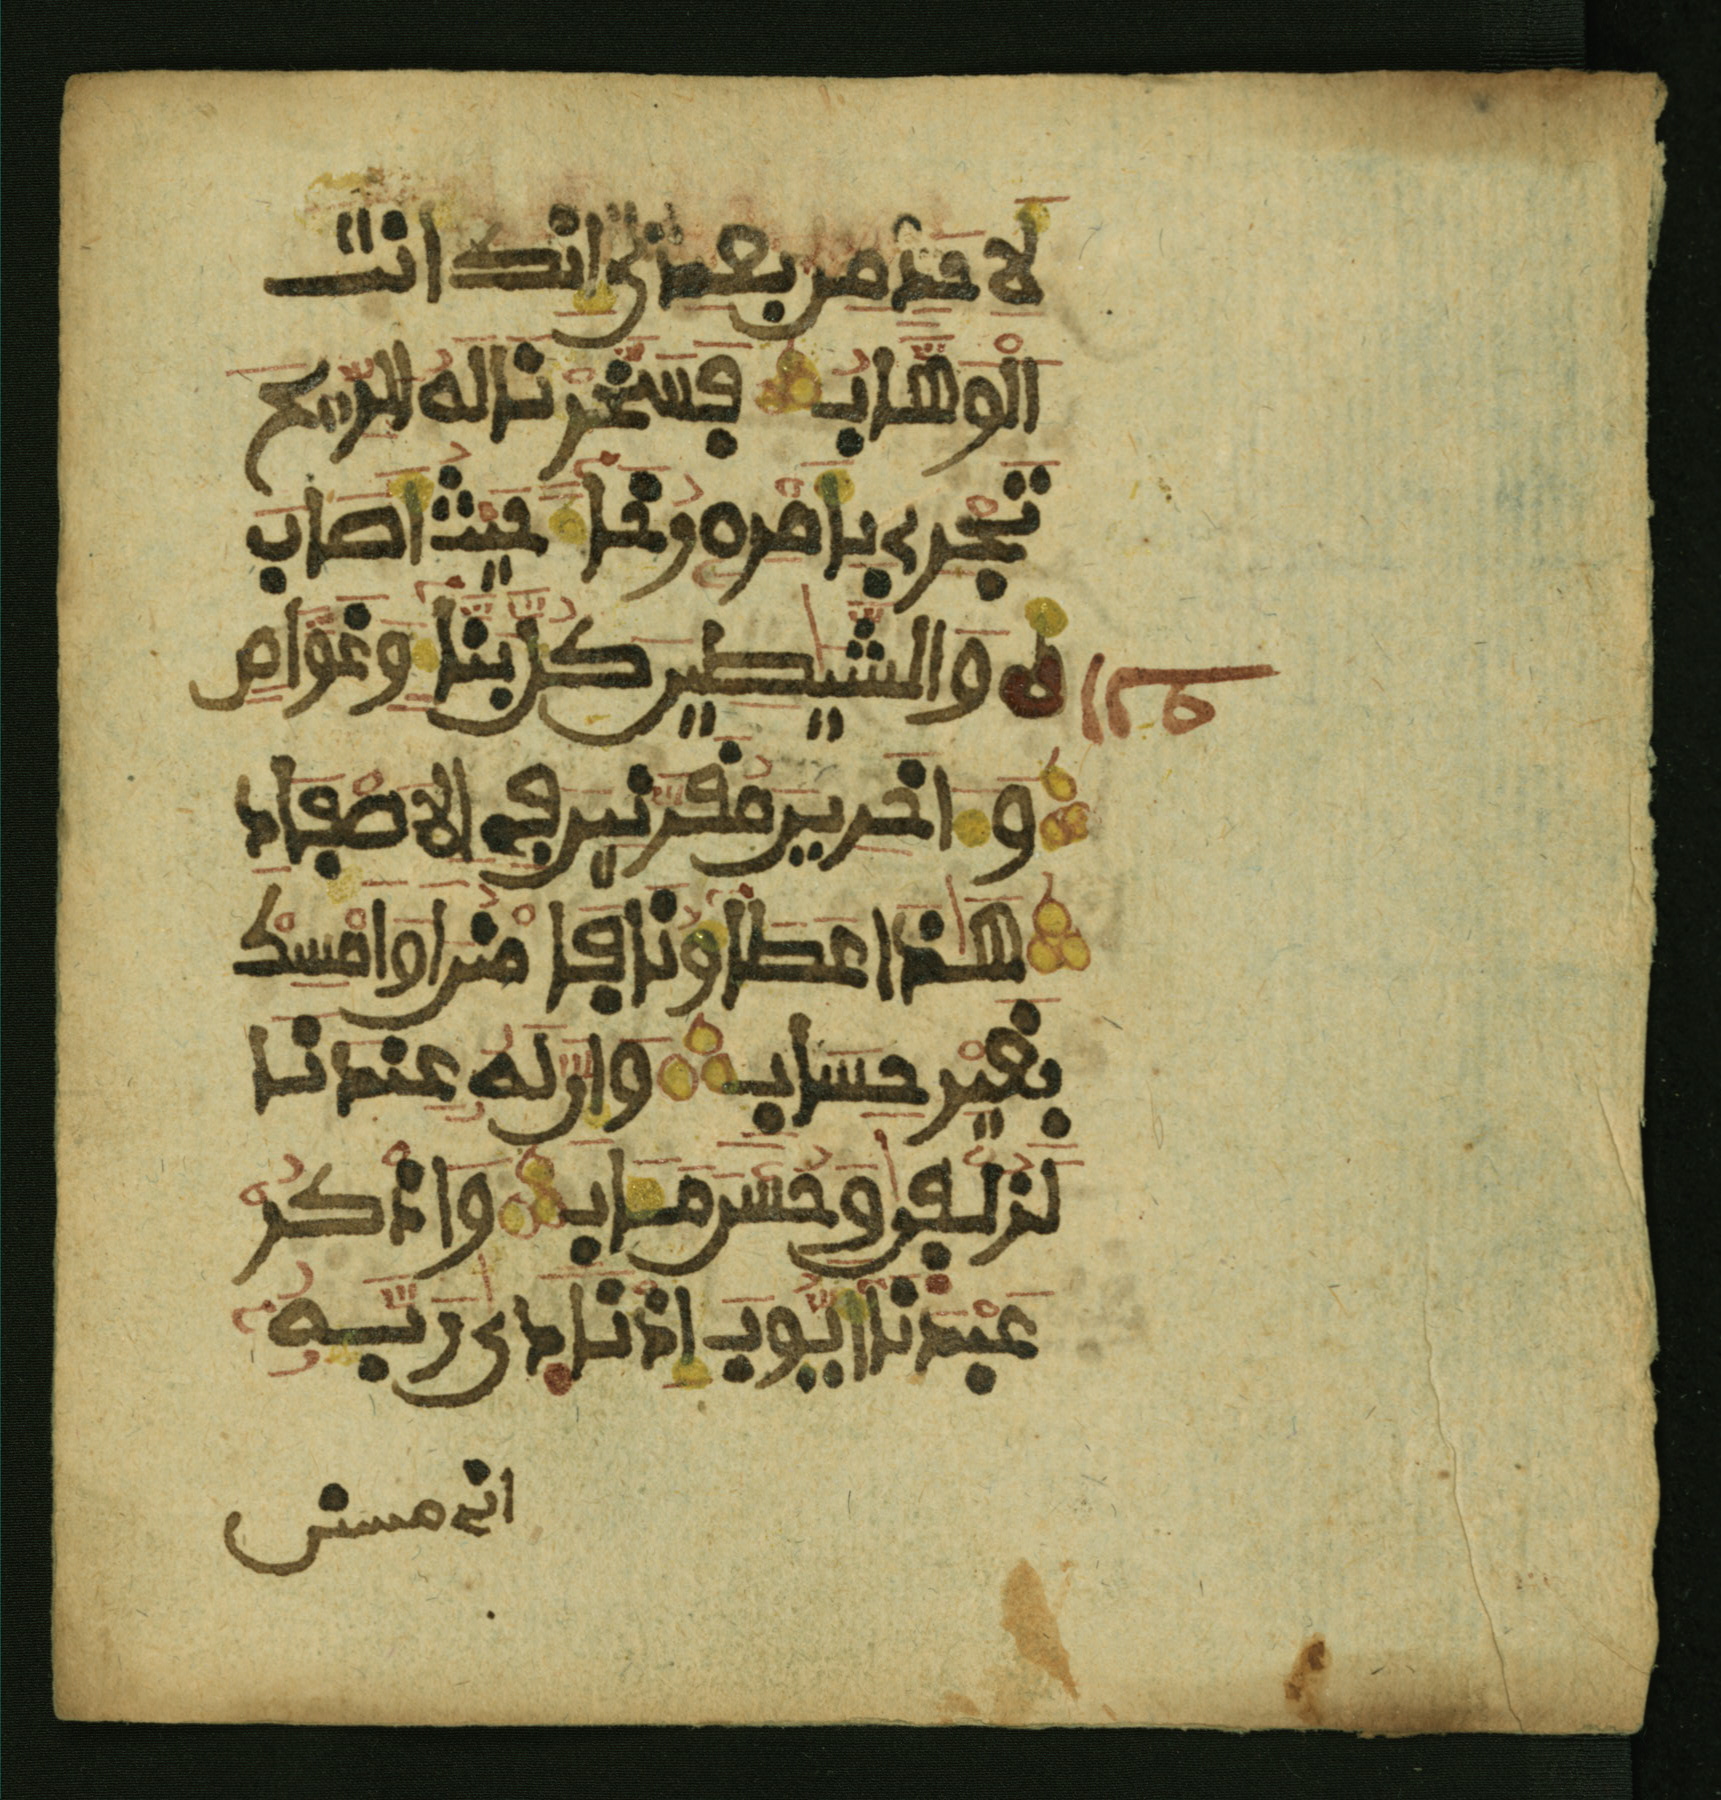 لاحد من بعدي انك انت
الوهاب فسخرنا له الريح
تجري بامره رخا حيث اصاب
والشيطين كل بنا وغواص
واخرين مقرنين في الاصفاد
هذا عطاونا فامنن او امسك
بغير حساب وان له عندنا
لزلفى وحسن مـاب واذكر
عبدنا ايوب اذ نادى ربه
اني مسني